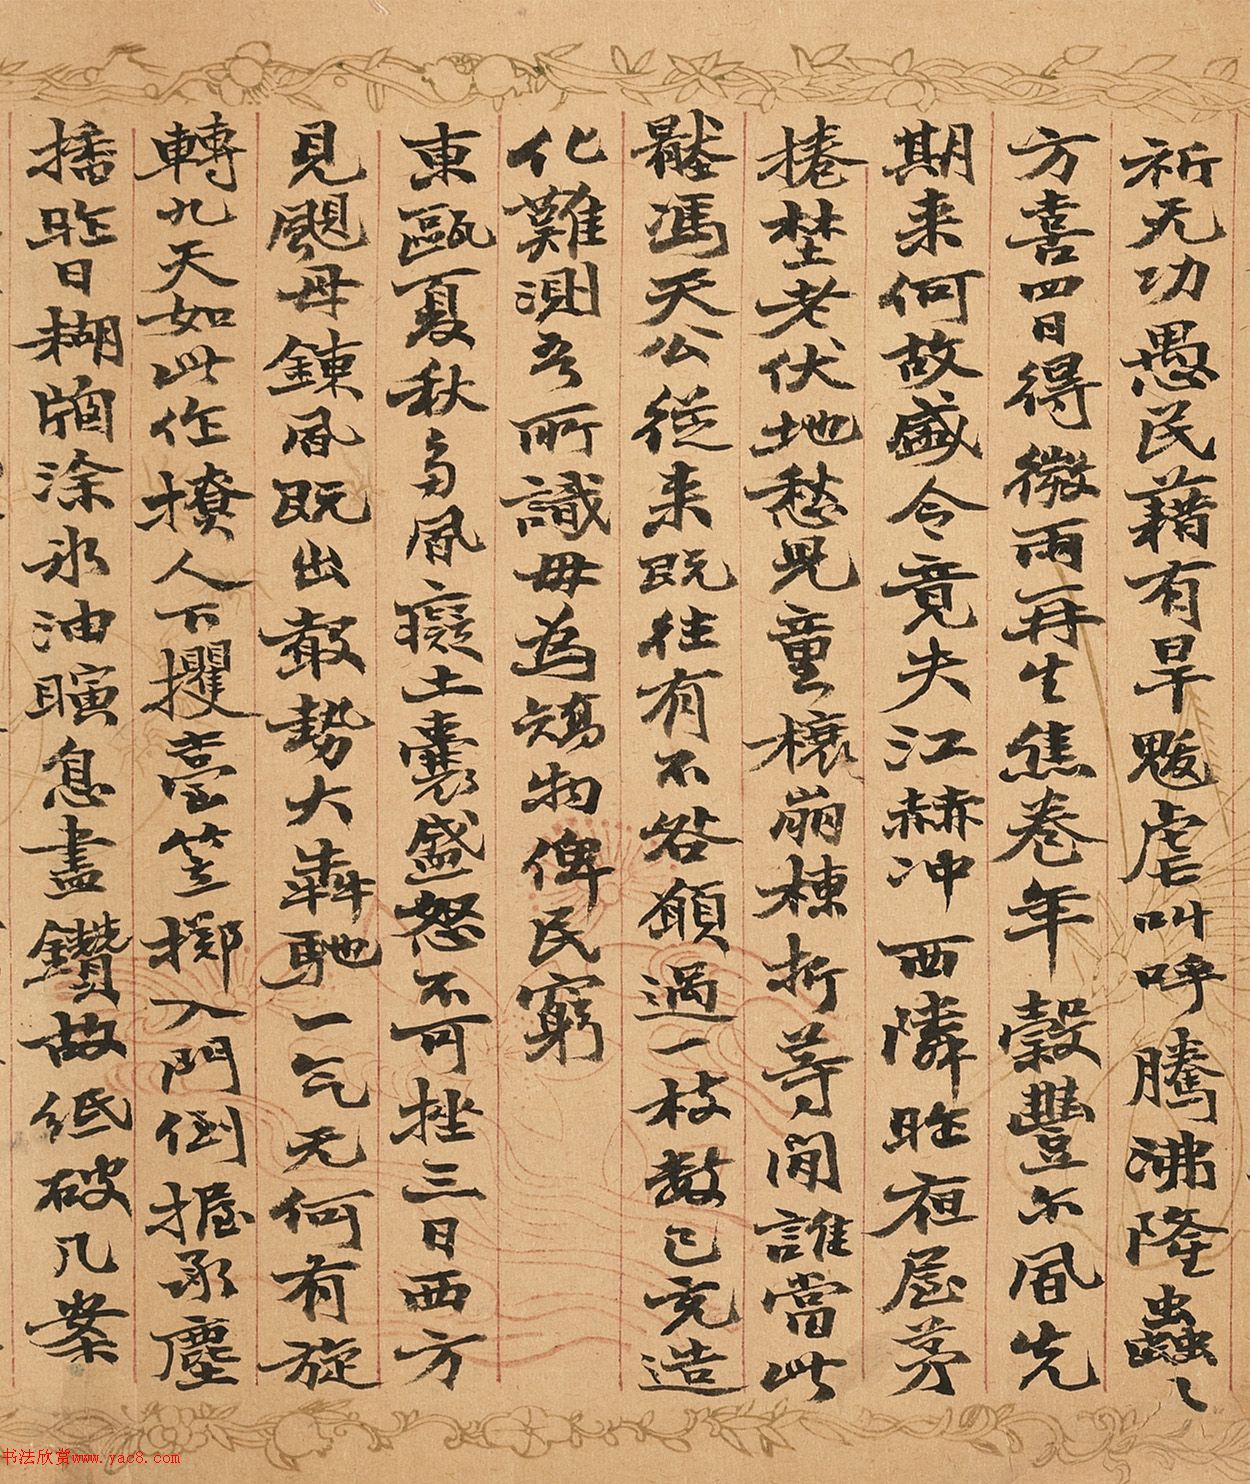 祈无功愚民藉有旱魃虐叫呼騰沸隆蟲〻
方喜四日得微雨再生焦卷年穀豐尒風先
期来何故盛令竟夫江赫冲西隣昨夜屋茅
捲埜老伏地愁兒童榱崩棟折等閒誰當此
馮天公從来既往有不咎顧過一枝數已克造
化難測吾所識毋為鴆物俾民窮
東甌夏秋多風癡土囊盛怒不可挫三日西方
見颶母鍊風既出鼓勢大犇馳一气无何有旋
轉九天如此作撩人下攫臺笠擲入門倒握承塵
播昨日糊牖涂氷油瞚息盡鑽故紙破几案
书法欣赏www.yac8.com